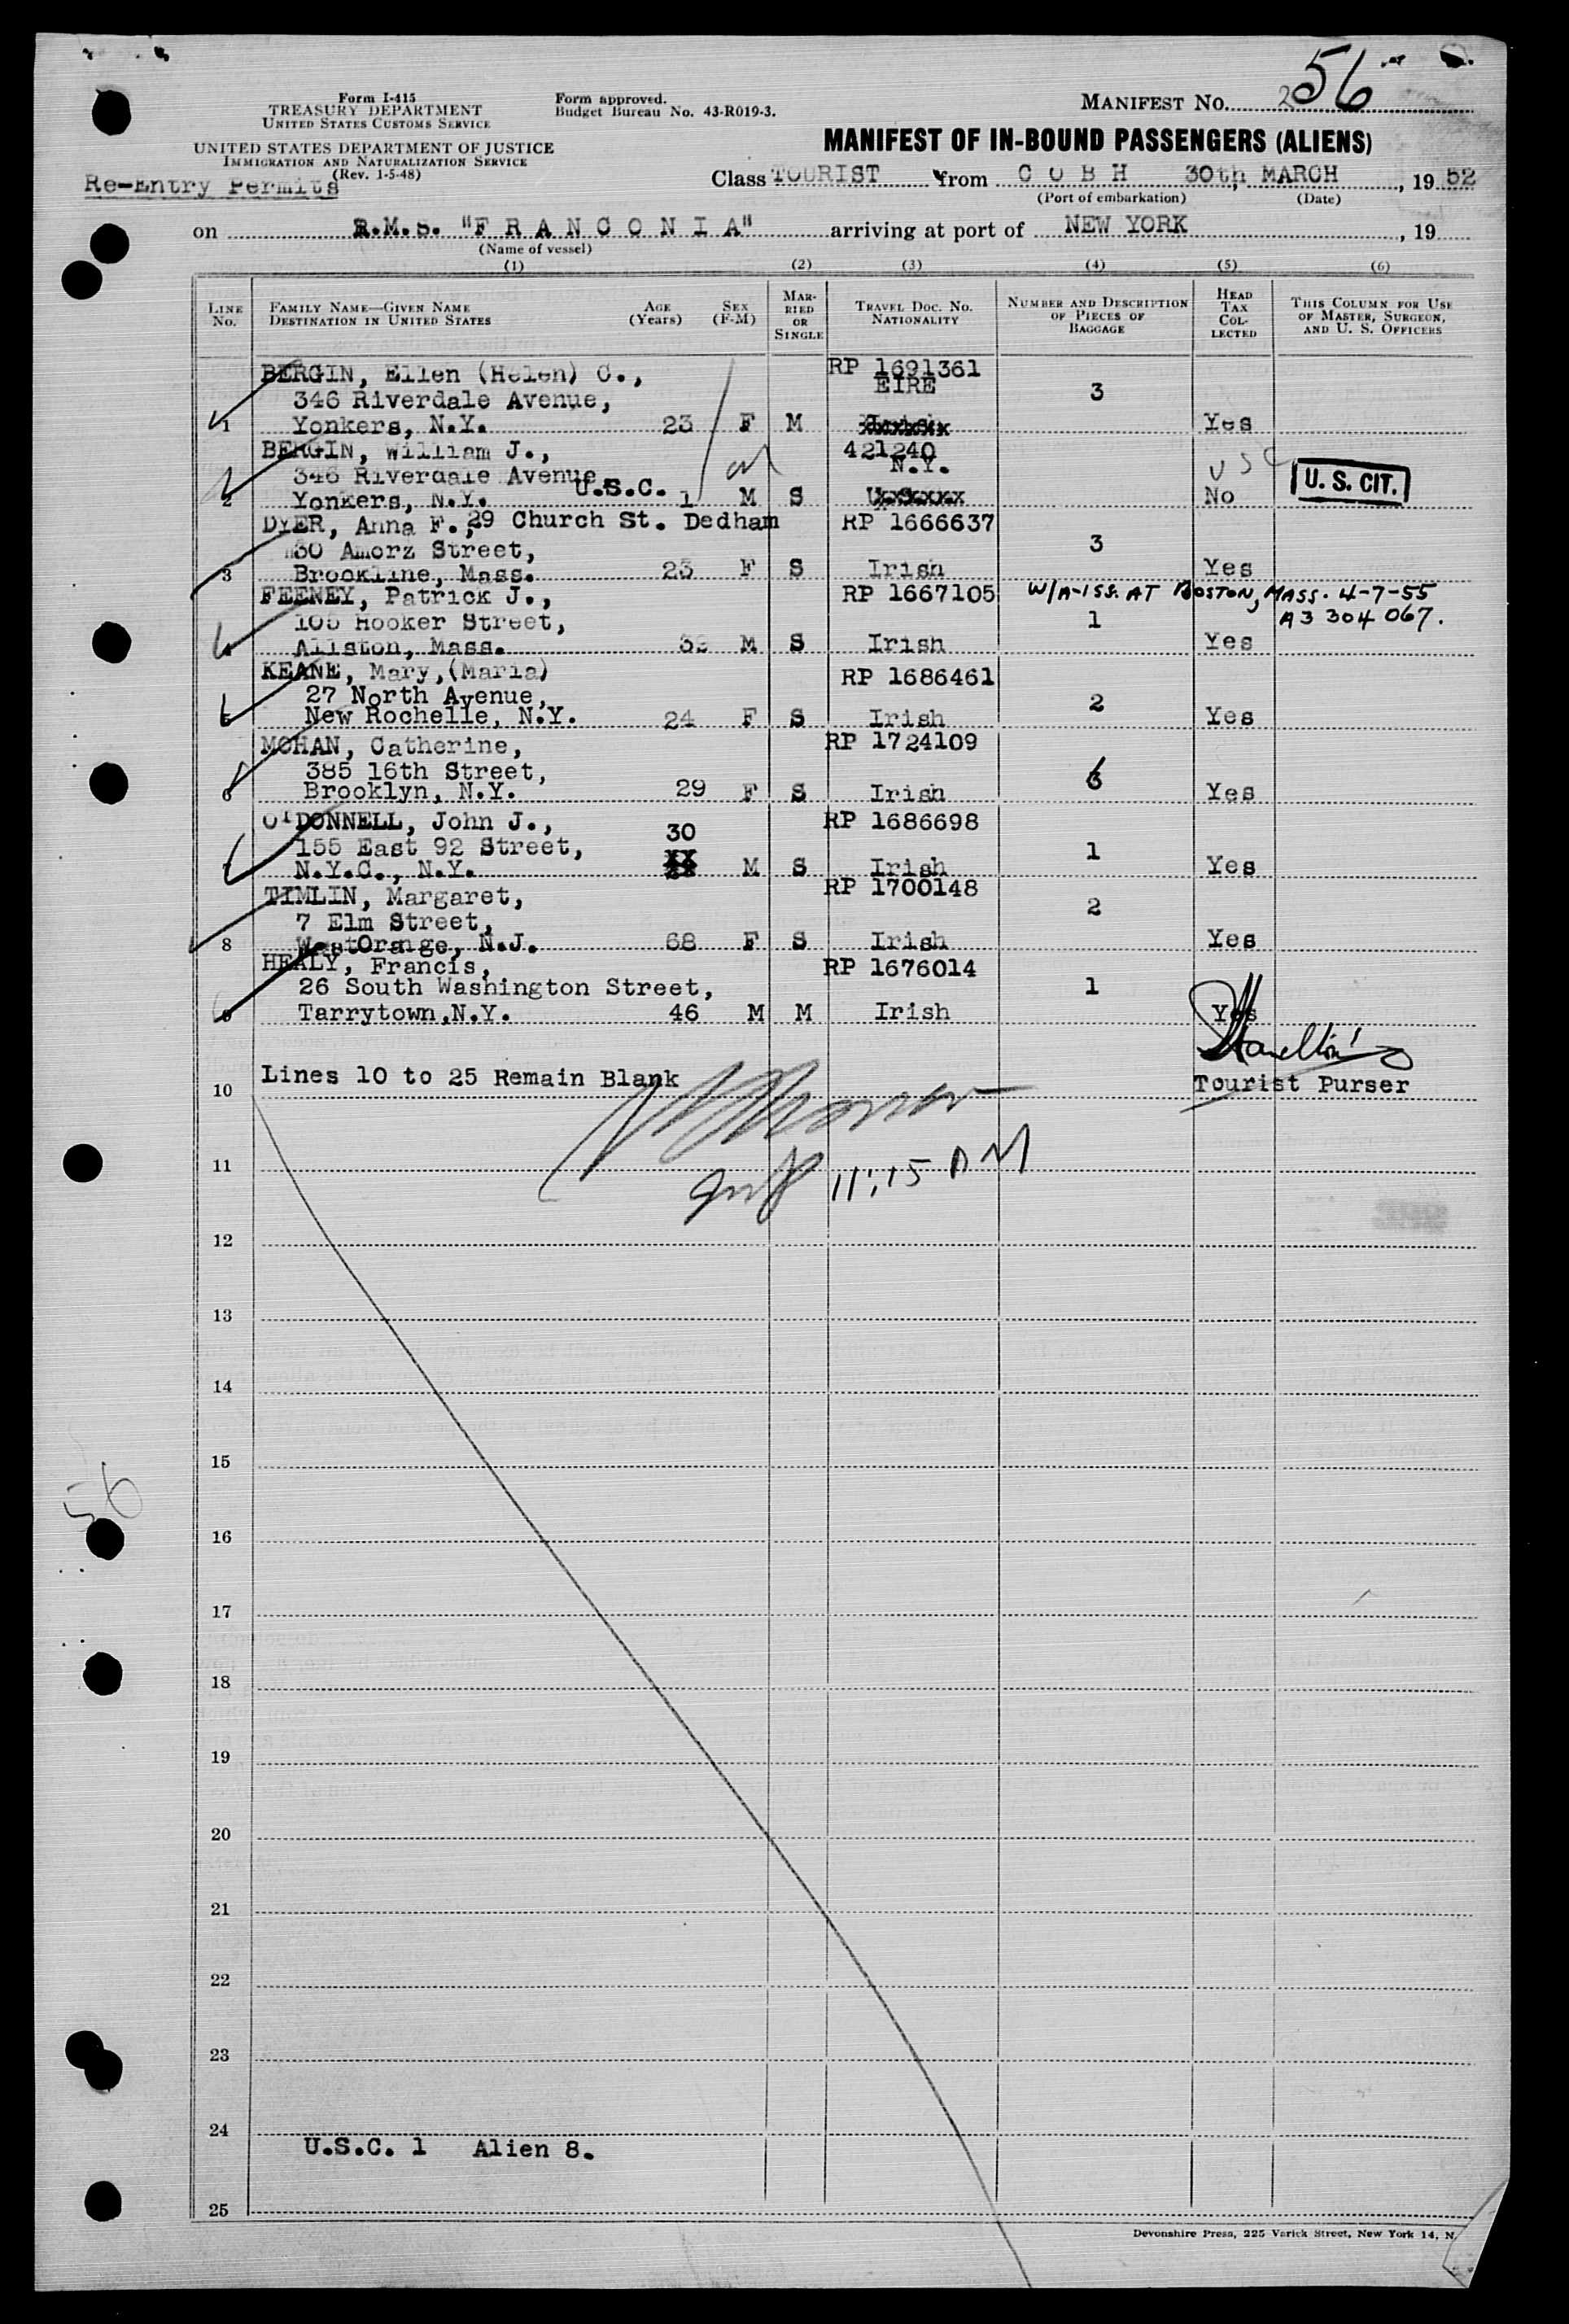 56
Form I-415
TREASURY DEPARTMENT
UNITED STATES CUSTOMS SERVICE
Form approved.
Budget Bureau No. 43-R019-3.
MANIFEST NO.
UNITED STATES DEPARTMENT OF JUSTICE
IMMIGRATION AND NATURALIZATION SERVICE
(Rev. 1-5-48)
MANIFEST OF IN-BOUND PASSENGERS (ALIENS)
Re-Entry Permits
Class TOURIST from C O B H 30th MARCH, 19 52
(Port of embarkation) (Date)
on R.M.S. "F R A N C O N I A" arriving at port of NEW YORK, 19
(Name of vessel)
(1) (2) (3) (4) (5) (6)
LINE NO. FAMILY NAME—GIVEN NAME DESTINATION IN UNITED STATES AGE (Years) SEX (F-M) MARRIED OR SINGLE TRAVEL DOC. NO. NATIONALITY NUMBER AND DESCRIPTION OF PIECES OF BAGGAGE HEAD TAX COLLECTED THIS COLUMN FOR USE OF MASTER, SURGEON, AND U. S. OFFICERS
BERGIN, Ellen (Helen) C., RP 1691361
346 Riverdale Avenue, EIRE 3
1 Yonkers, N.Y. 23 F M Yes
BERGIN, William J., 421240
346 Riverdale Avenue N.Y. USC U. S. CIT.
2 Yonkers, N.Y. U.S.C. 1 M S No
DYER, Anna F., 29 Church St. Dedham RP 1666637
30 Amorz Street, 3
3 Brookline, Mass. 23 F S Irish Yes
FEENEY, Patrick J., RP 1667105 W/A-ISS. AT BOSTON, MASS. 4-7-55
Hooker Street, 1 A3 304 067.
4 Allston, Mass. M S Irish Yes
KEANE, Mary, (Maria) RP 1686461
27 North Avenue, 2
5 New Rochelle, N.Y. 24 F S Irish Yes
MOHAN, Catherine, RP 1724109
385 16th Street,
6 Brooklyn, N.Y. 29 F S Irish Yes
O'DONNELL, John J., 30 RP 1686698
155 East 92 Street, 1
7 N.Y.C., N.Y. M S Irish Yes
TIMLIN, Margaret, RP 1700148
7 Elm Street, 2
8 WestOrange, N.J. 68 F S Irish Yes
HEALY, Francis, RP 1676014
26 South Washington Street, 1
9 Tarrytown, N.Y. 46 M M Irish Yes
10 Lines 10 to 25 Remain Blank Tourist Purser
11 11:15 AM
12
13
14
15
56
16
17
18
19
20
21
22
23
24
U.S.C. 1 Alien 8.
25
Devonshire Press, 225 Varick Street, New York 14, N.